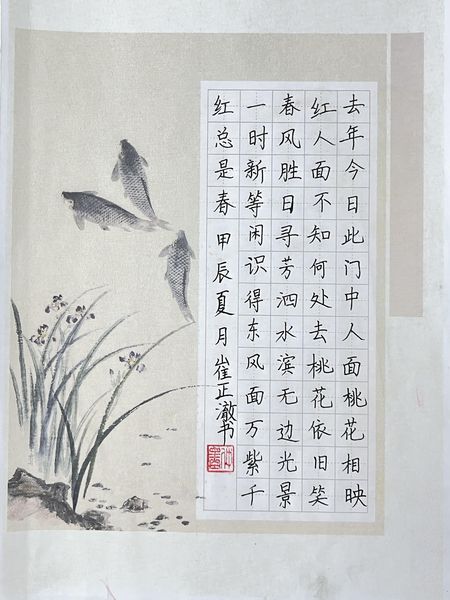 去年今日此门中人面桃花相映
红人面不知何处去桃花依旧笑
春风胜日寻芳泗水滨无边光景
一时新等闲识得东风面万紫千
红总是春甲辰夏月崔正澈书